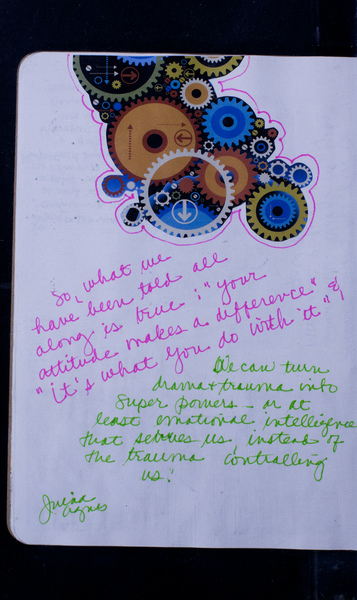 So, what we
have been told all
along is true; "your
attitude makes a difference" &
"it's what you do with it"
We can turn
drama + trauma into
super powers — or at
least emotional intelligence
that serves us instead of
the trauma controlling
us."
Agnes